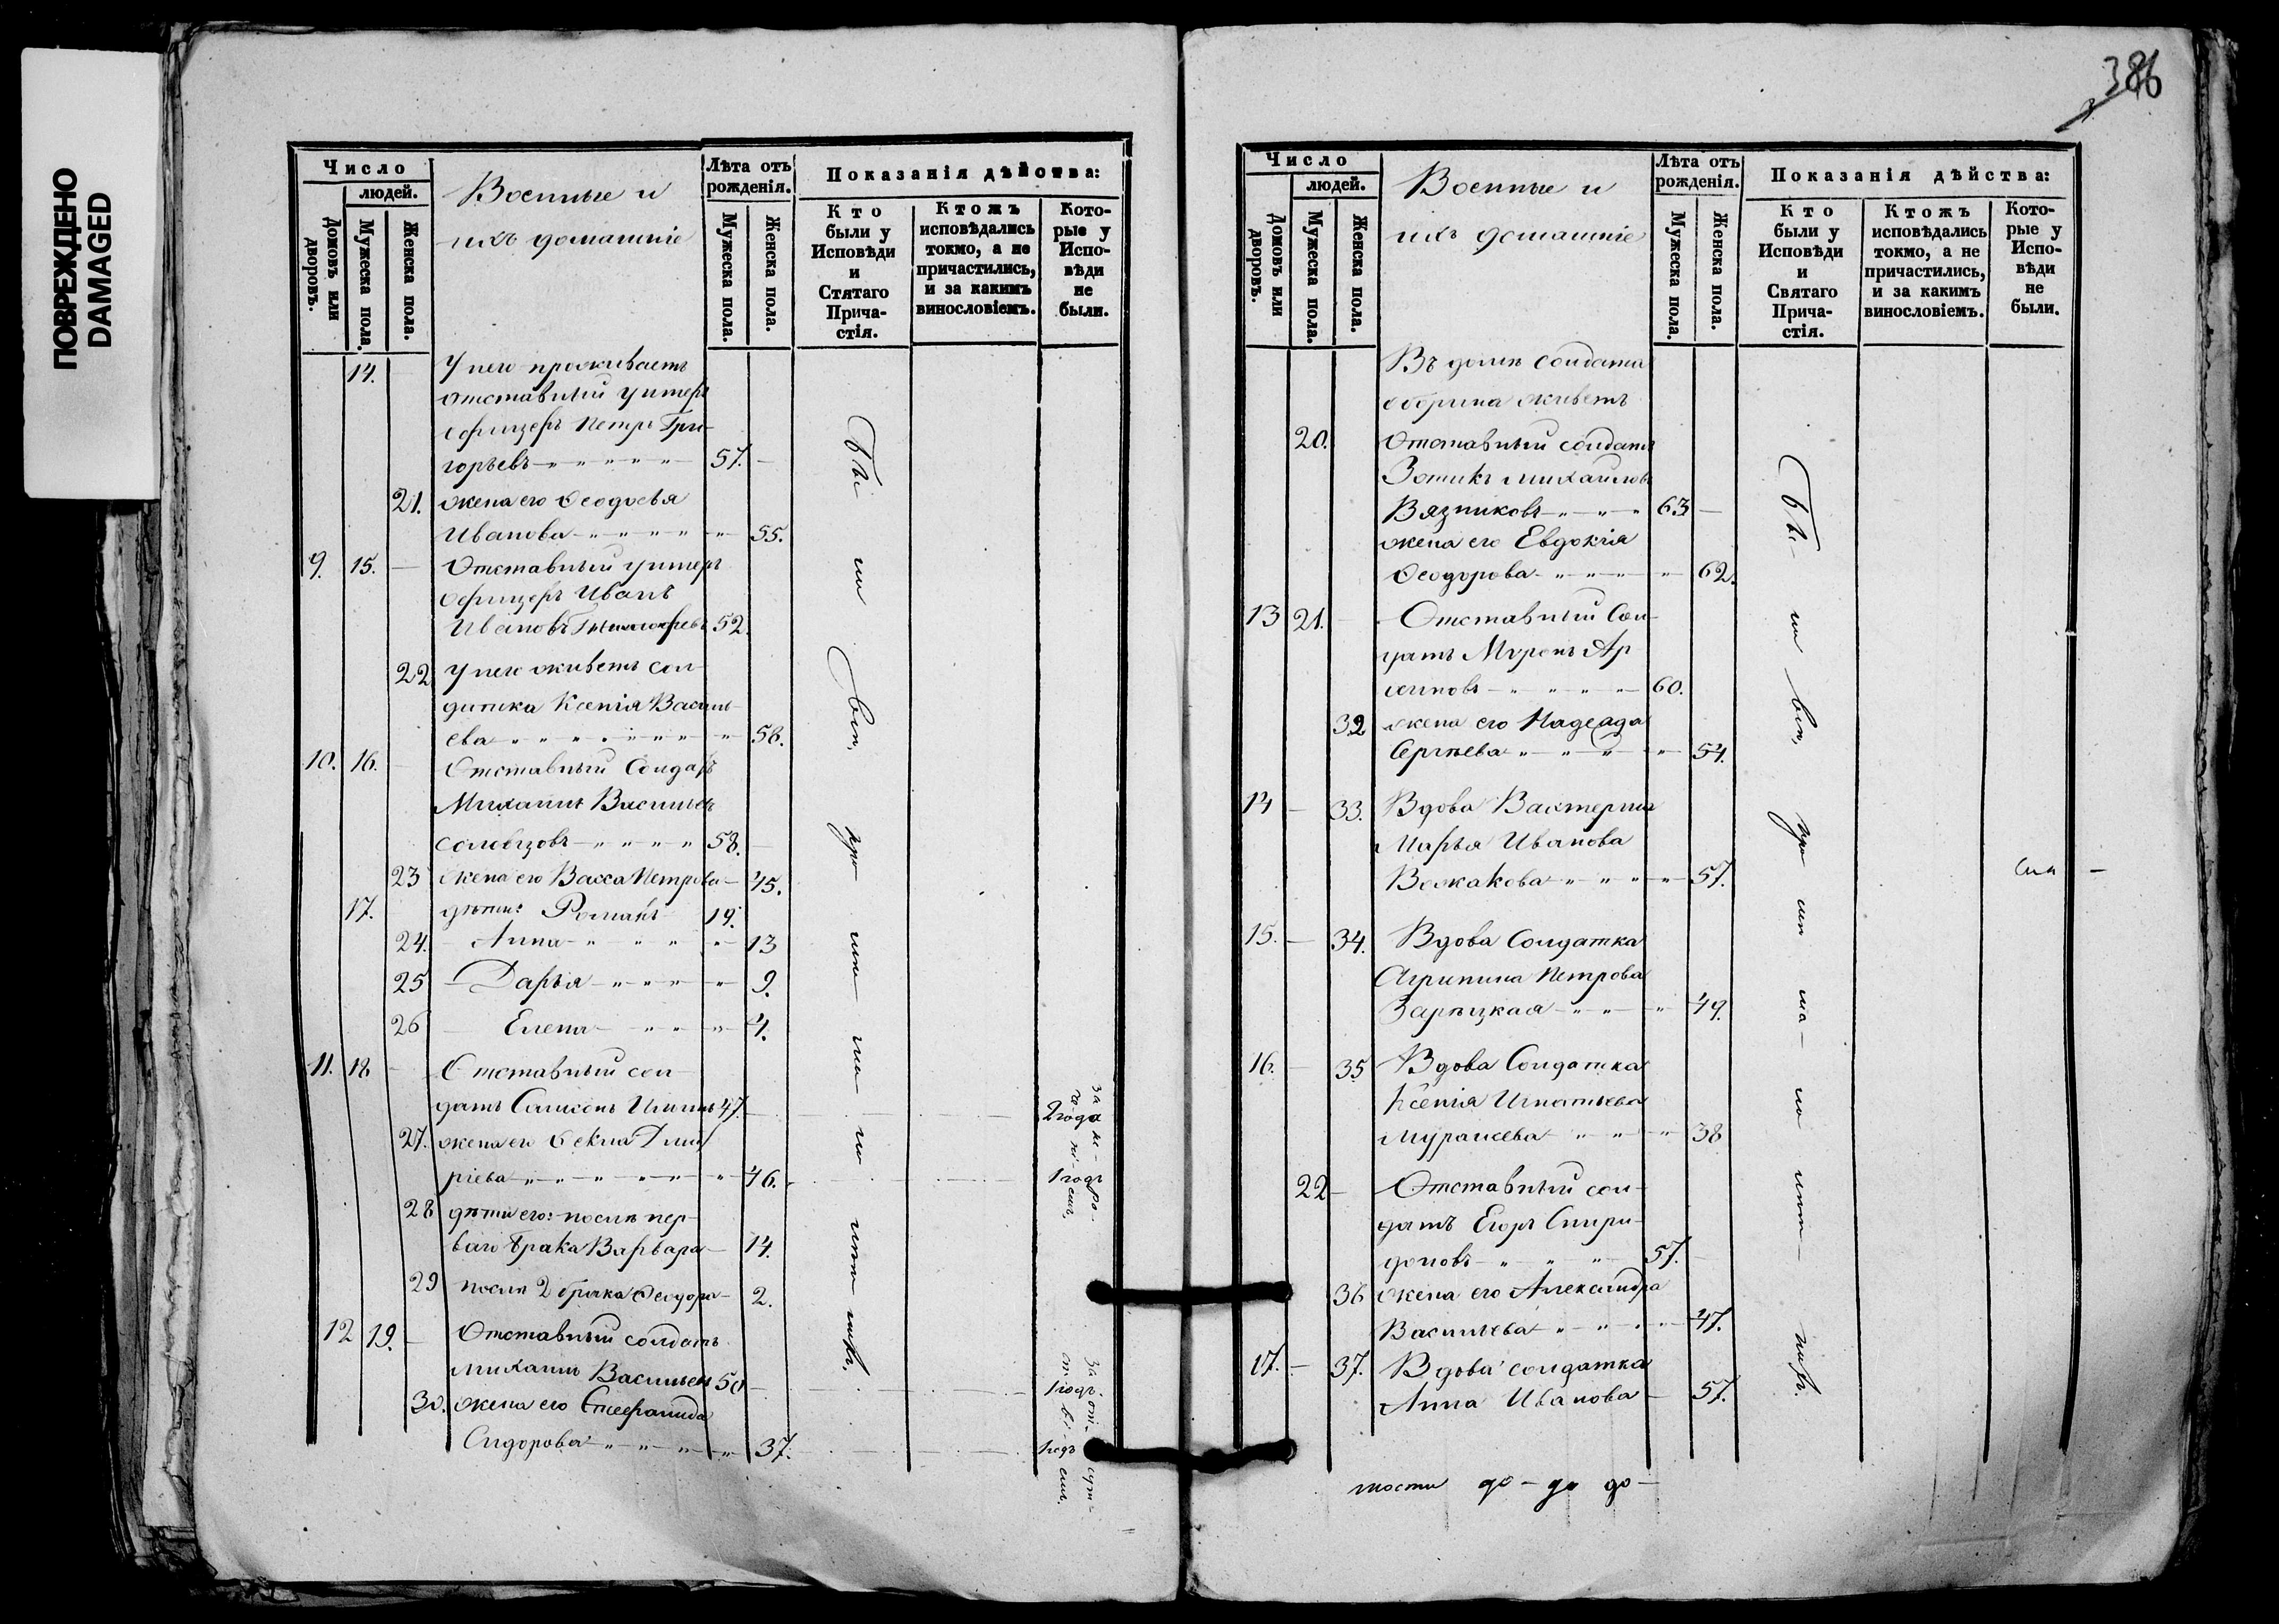 ПОВРЕЖДЕНО
DAMAGED
Число
людей.
Домовъ или дворовъ.
Мужеска пола.
Женска пола.
Военные и
ихъ домашніе
Лѣта отъ рожденія.
Мужеска пола.
Женска пола.
Показанія дѣйства:
Кто были у Исповѣди и Стятаго Прича-стія.
Ктожъ исповѣдались токмо, а не причастились, и за какимъ винословіемъ.
Кото-рые у Испо-вѣди не были.
14. У него проживаетъ
отставный унтеръ
офицеръ Петръ Гри-
горьевъ 57.
21. жена его Ѳеодосья
Иванова 55.
9. 15. Отставный унтеръ
офицеръ Иванъ
Ивановъ 52.
22 У него живетъ сол-
датка Ксенія Василь-
ева 58.
10. 16. Отставный Солдатъ
Михаилъ Васильевъ
Соловцовъ 58.
23 жена его Васса Петрова 45.
17. дѣти: Романъ 19.
24. Анна 13
25 Дарья 9.
26 Елена 4.
11. 18 Отставный сол-
датъ 47. 2 года
27. жена его Ѳекла Дмит
ріева 46. 1 годъ
28 дѣти его: послѣ пер-
ваго брака Варвара 14.
29 послѣ 2 брака Ѳеодора 2.
12 19. Отставный солдатъ
Михаилъ Васильевъ 50 1 годъ
30. жена его Стефанида
Сидорова 37. 1 годъ
386
Число
людей.
Домовъ или дворовъ.
Мужеска пола.
Женска пола.
Военные и
ихъ домашніе
Лѣта отъ рожденія.
Мужеска пола
Женска пола.
Показанія дѣйства:
Кто были у Исповѣди и Святаго Прича-стія.
Ктожъ исповѣдались токмо, а не причастились, и за какимъ винословіемъ.
Кото-рые у Испо-вѣди не были.
Въ домѣ Солдата
живетъ
20. Отставный солдатъ
Зотикъ Михайловъ
Вязниковъ 63
жена его Евдокія
Ѳеодорова 62.
13 21. Отставный Сол-
датъ Миронъ Ар
хиповъ 60.
32 жена его Надежда
Сергѣева 54.
14 33. Вдова
Марья Иванова
57.
15. 34. Вдова Солдатка
Агрипина Петрова
Зарѣцкая 49.
16. 35 Вдова Солдатка
Ксенія Игнатьева
38
22 Отставный сол-
датъ Егоръ Спири-
доновъ 57.
36 жена его Александра
Васильева 47.
17. 37. Вдова солдатка
Анна Иванова 57.